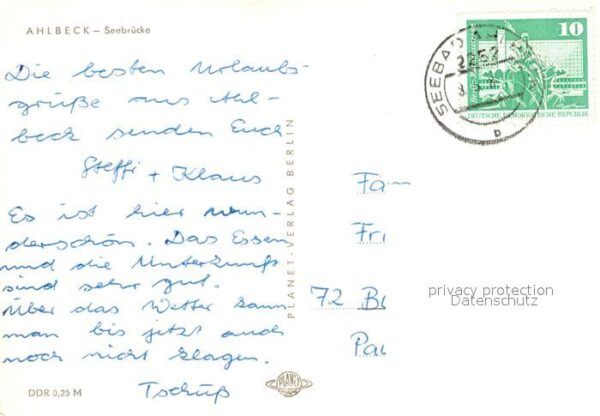 AHLBECK – Seebrücke
Die besten Urlaubs-
grüße aus Ahl-
beck senden Euch
Steffi + Klaus
Es ist hier wun-
derschön. Das Essen
und die Unterkunft
sind sehr gut.
Über das Wetter kann
man bis jetzt auch
noch nicht klagen.
Tschüß
DDR 0,25 M
PLANET-VERLAG BERLIN
PLANET
SEEBAD
2252
b
10
DEUTSCHE DEMOKRATISCHE REPUBLIK
Fam
Fri
72 B
Pau
privacy protection
Datenschutz